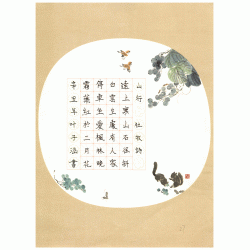 山行 杜牧詩
遠上寒山石徑斜
白雲生處有人家
停車坐愛楓林晚
霜葉紅於二月花
辛丑年叶子涵書